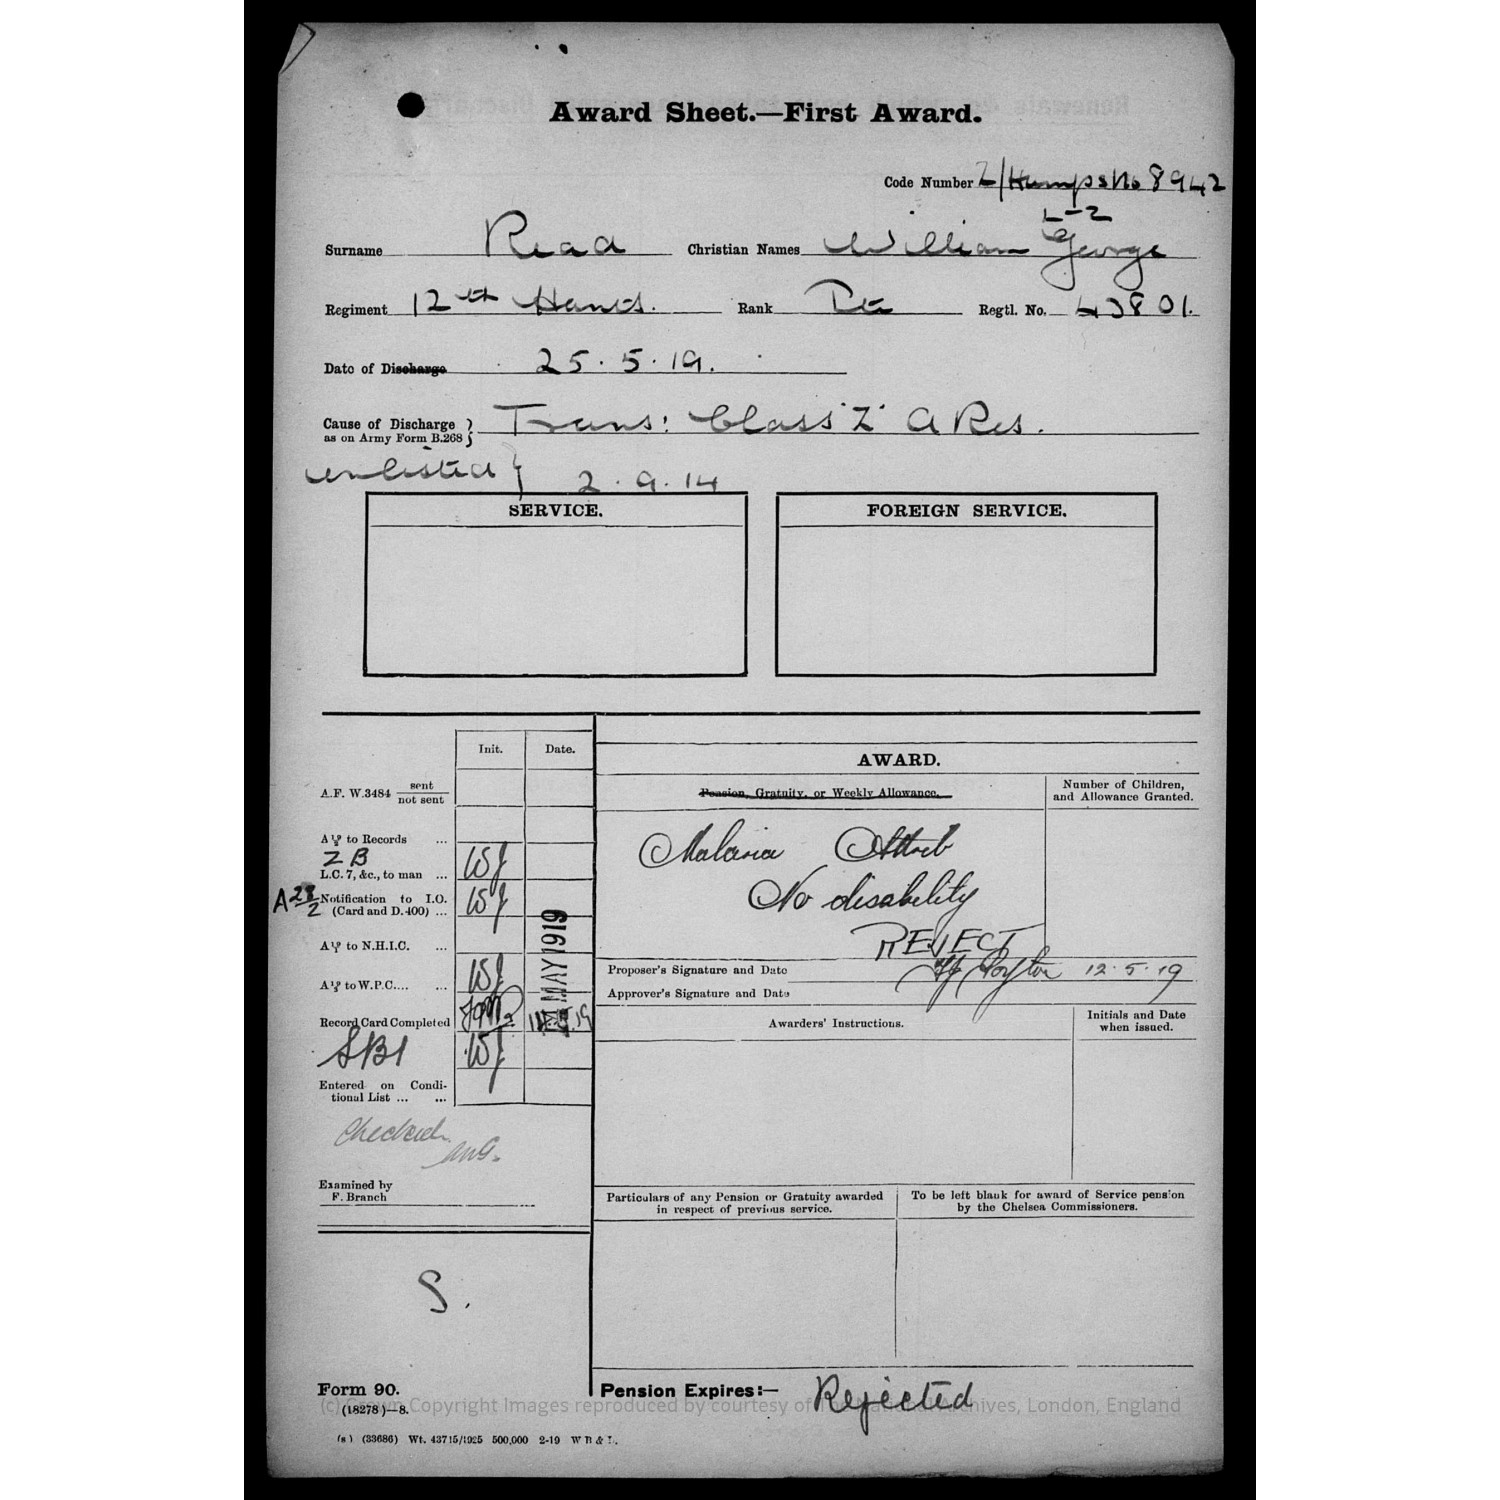 Award Sheet.—First Award.
Code Number Z/Hamps No 8942
L-2
Surname Read Christian Names William George
Regiment 12th Hants. Rank Pte Regtl. No. 43801.
Date of Discharge 25.5.19.
Cause of Discharge } Trans: Class 'Z' A Res.
as on Army Form B.268
enlisted } 2.9.14
SERVICE.
FOREIGN SERVICE.
Init. Date.
A.F. W.3484 sent
not sent
A to Records ...
Z B
L.C. 7, &c., to man ... WJ
A 28/2 Notification to I.O.
(Card and D.400) ... WJ
A to N.H.I.C. ...
A to W.P.C.... ... WJ
MAY 1919
Record Card Completed
SB1 WJ
Entered on Condi-
tional List ... ...
Checked
Examined by
F. Branch
S.
AWARD.
Pension, Gratuity, or Weekly Allowance.
Number of Children,
and Allowance Granted.
Malaria Attrib
No disability
REJECT
Proposer's Signature and Date 12.5.19
Approver's Signature and Date
Awarders' Instructions.
Initials and Date
when issued.
Particulars of any Pension or Gratuity awarded
in respect of previous service.
To be left blank for award of Service pension
by the Chelsea Commissioners.
Form 90.
Pension Expires:— Rejected
(c) Crown Copyright Images reproduced by courtesy of The National Archives, London, England
(18278)—8.
(s) (33686) Wt. 43715/1925 500,000 2-19 W B & L.